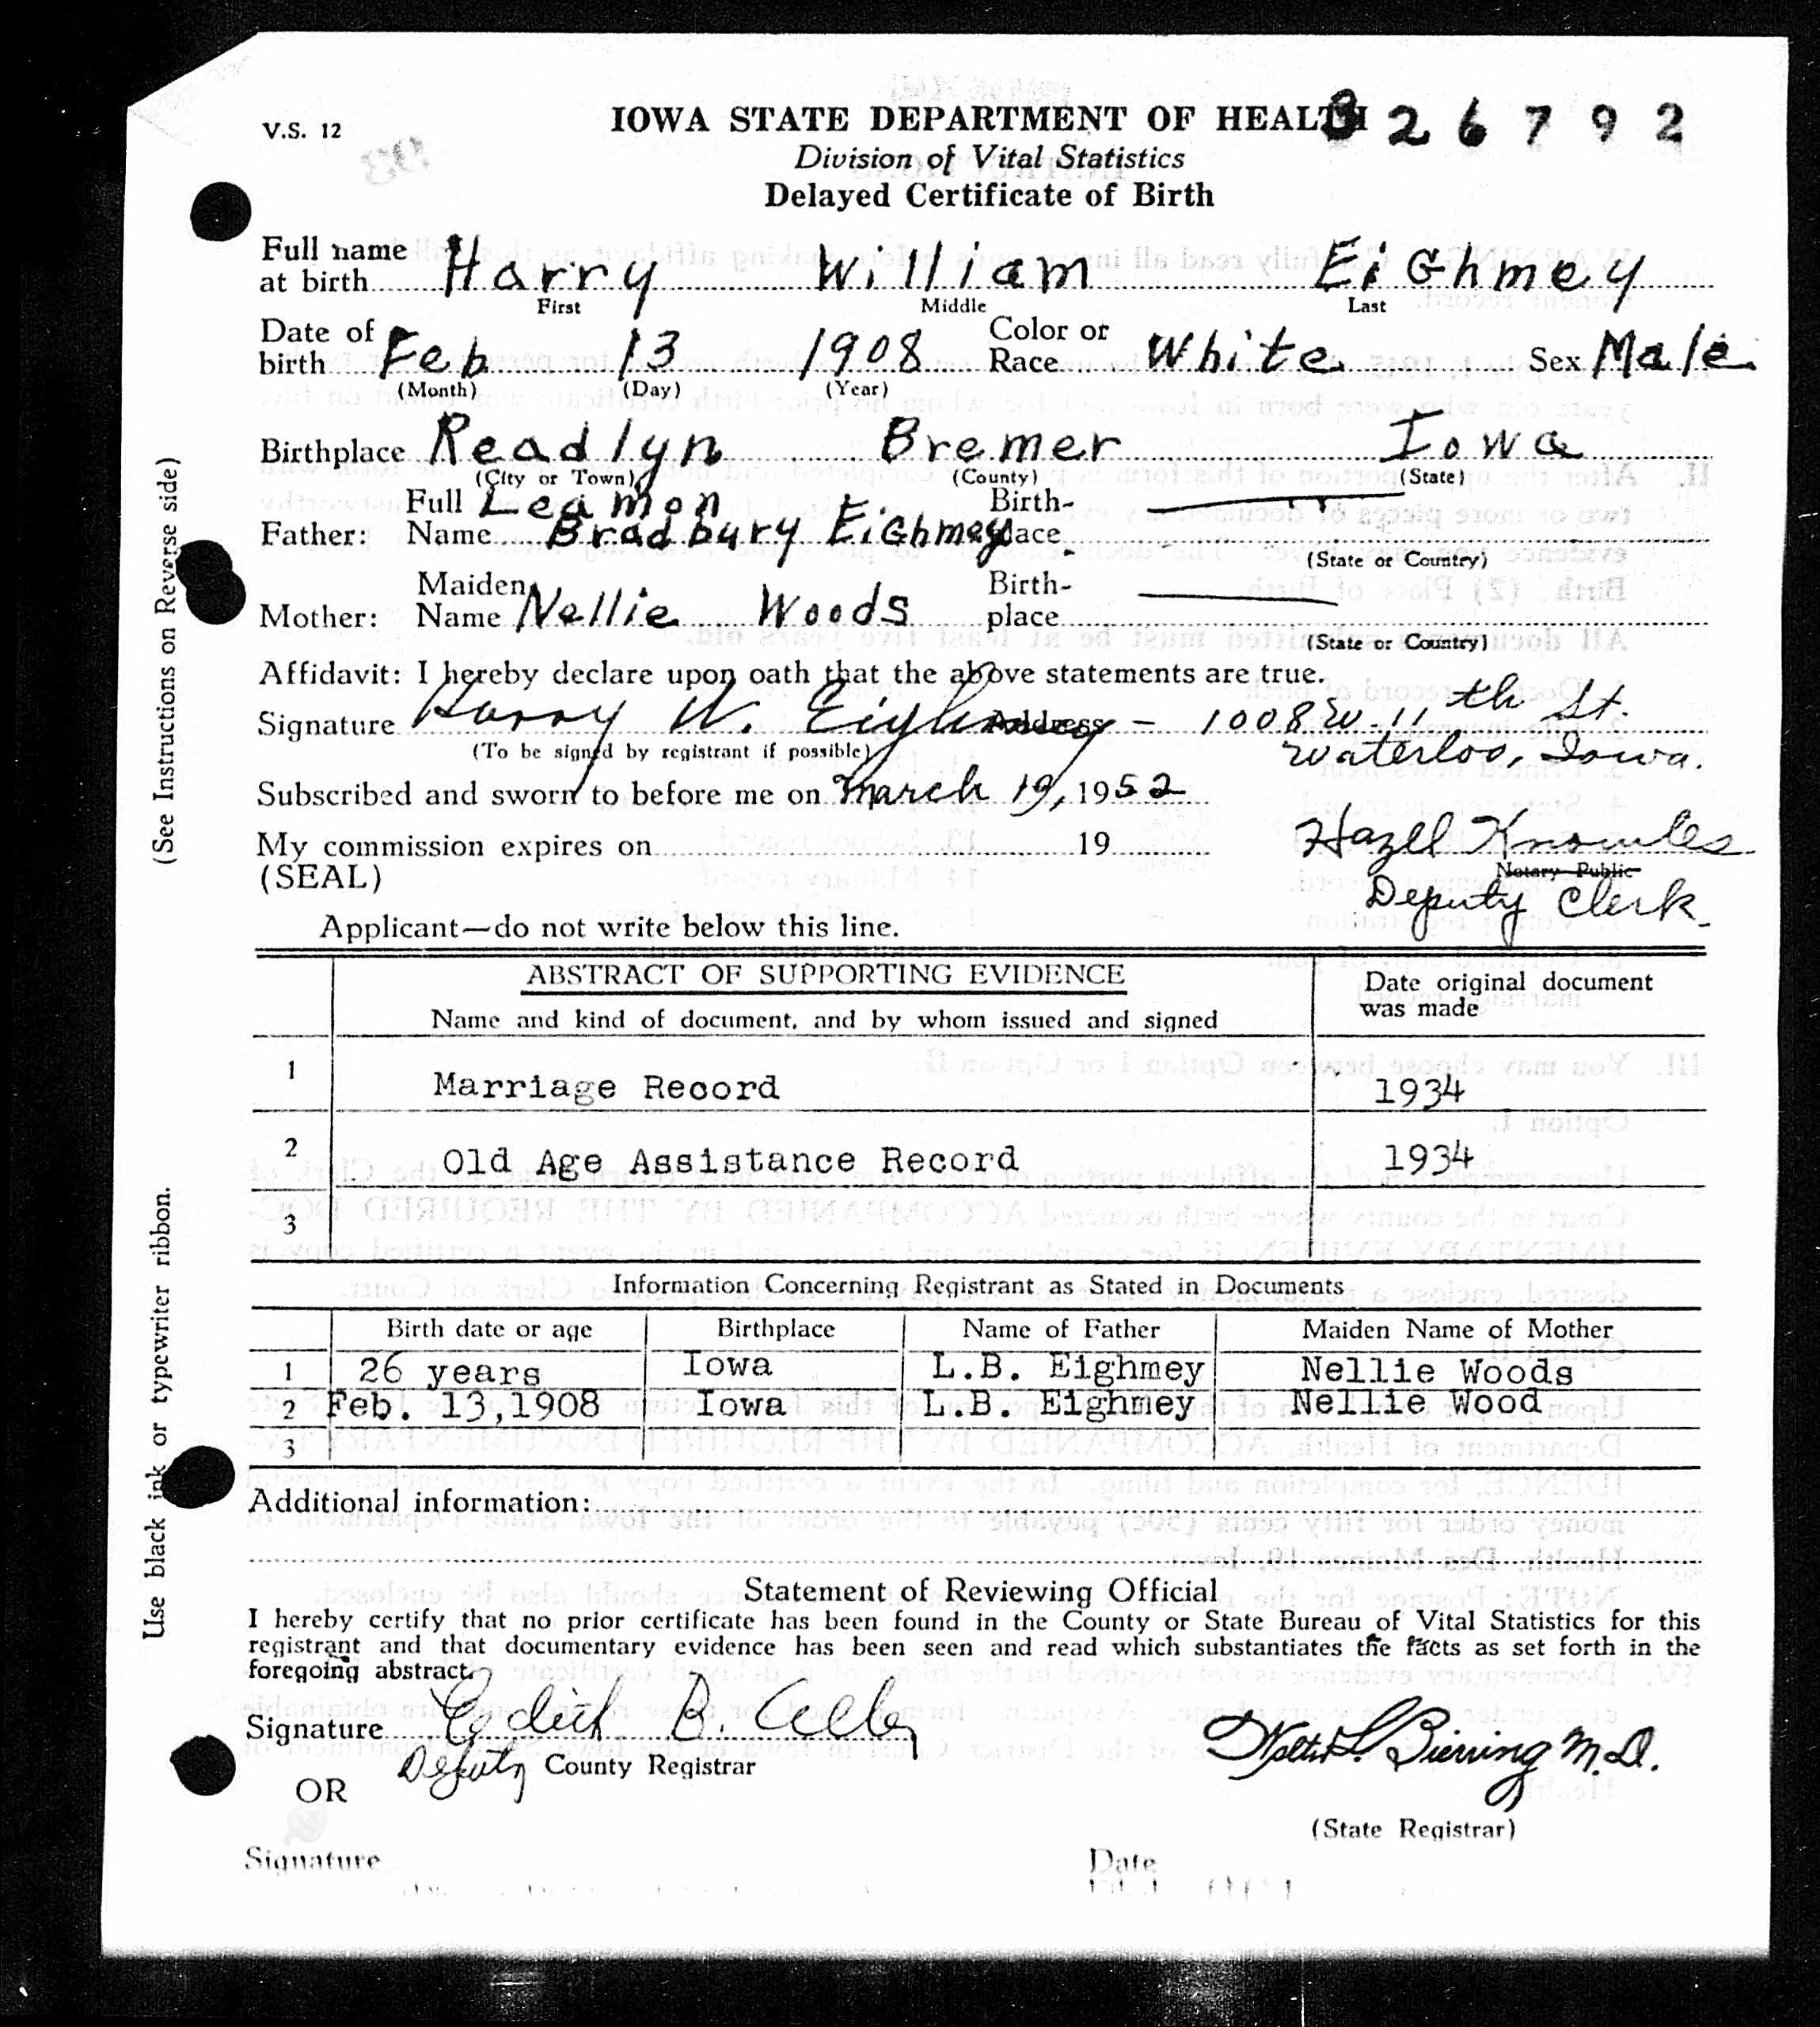 V.S. 12
IOWA STATE DEPARTMENT OF HEALTH
326792
Division of Vital Statistics
Delayed Certificate of Birth
Full name
at birth Harry William Eighmey
First Middle Last
Date of birth Feb 13 1908 Color or Race White Sex Male
(Month) (Day) (Year)
Birthplace Readlyn Bremer Iowa
(City or Town) (County) (State)
Father: Full Name Leamon Bradbury Eighmey Birth-place
(State or Country)
Mother: Maiden Name Nellie Woods Birth-place
(State or Country)
Affidavit: I hereby declare upon oath that the above statements are true.
Signature Harry W. Eighmey Address – 1008 W. 11th St.
Waterloo, Iowa.
(To be signed by registrant if possible)
Subscribed and sworn to before me on March 19, 1952
My commission expires on 19 Hazel Knowles
Notary Public
(SEAL) Deputy Clerk.
Applicant—do not write below this line.
ABSTRACT OF SUPPORTING EVIDENCE
Name and kind of document, and by whom issued and signed
Date original document was made
1 Marriage Record 1934
2 Old Age Assistance Record 1934
3
Information Concerning Registrant as Stated in Documents
Birth date or age Birthplace Name of Father Maiden Name of Mother
1 26 years Iowa L.B. Eighmey Nellie Woods
2 Feb. 13,1908 Iowa L.B. Eighmey Nellie Wood
3
Additional information:
Statement of Reviewing Official
I hereby certify that no prior certificate has been found in the County or State Bureau of Vital Statistics for this
registrant and that documentary evidence has been seen and read which substantiates the facts as set forth in the
foregoing abstract.
Signature Edith B.
Deputy County Registrar
Walter L. Bierring M.D.
OR
(State Registrar)
Signature Date
(See Instructions on Reverse side)
Use black ink or typewriter ribbon.